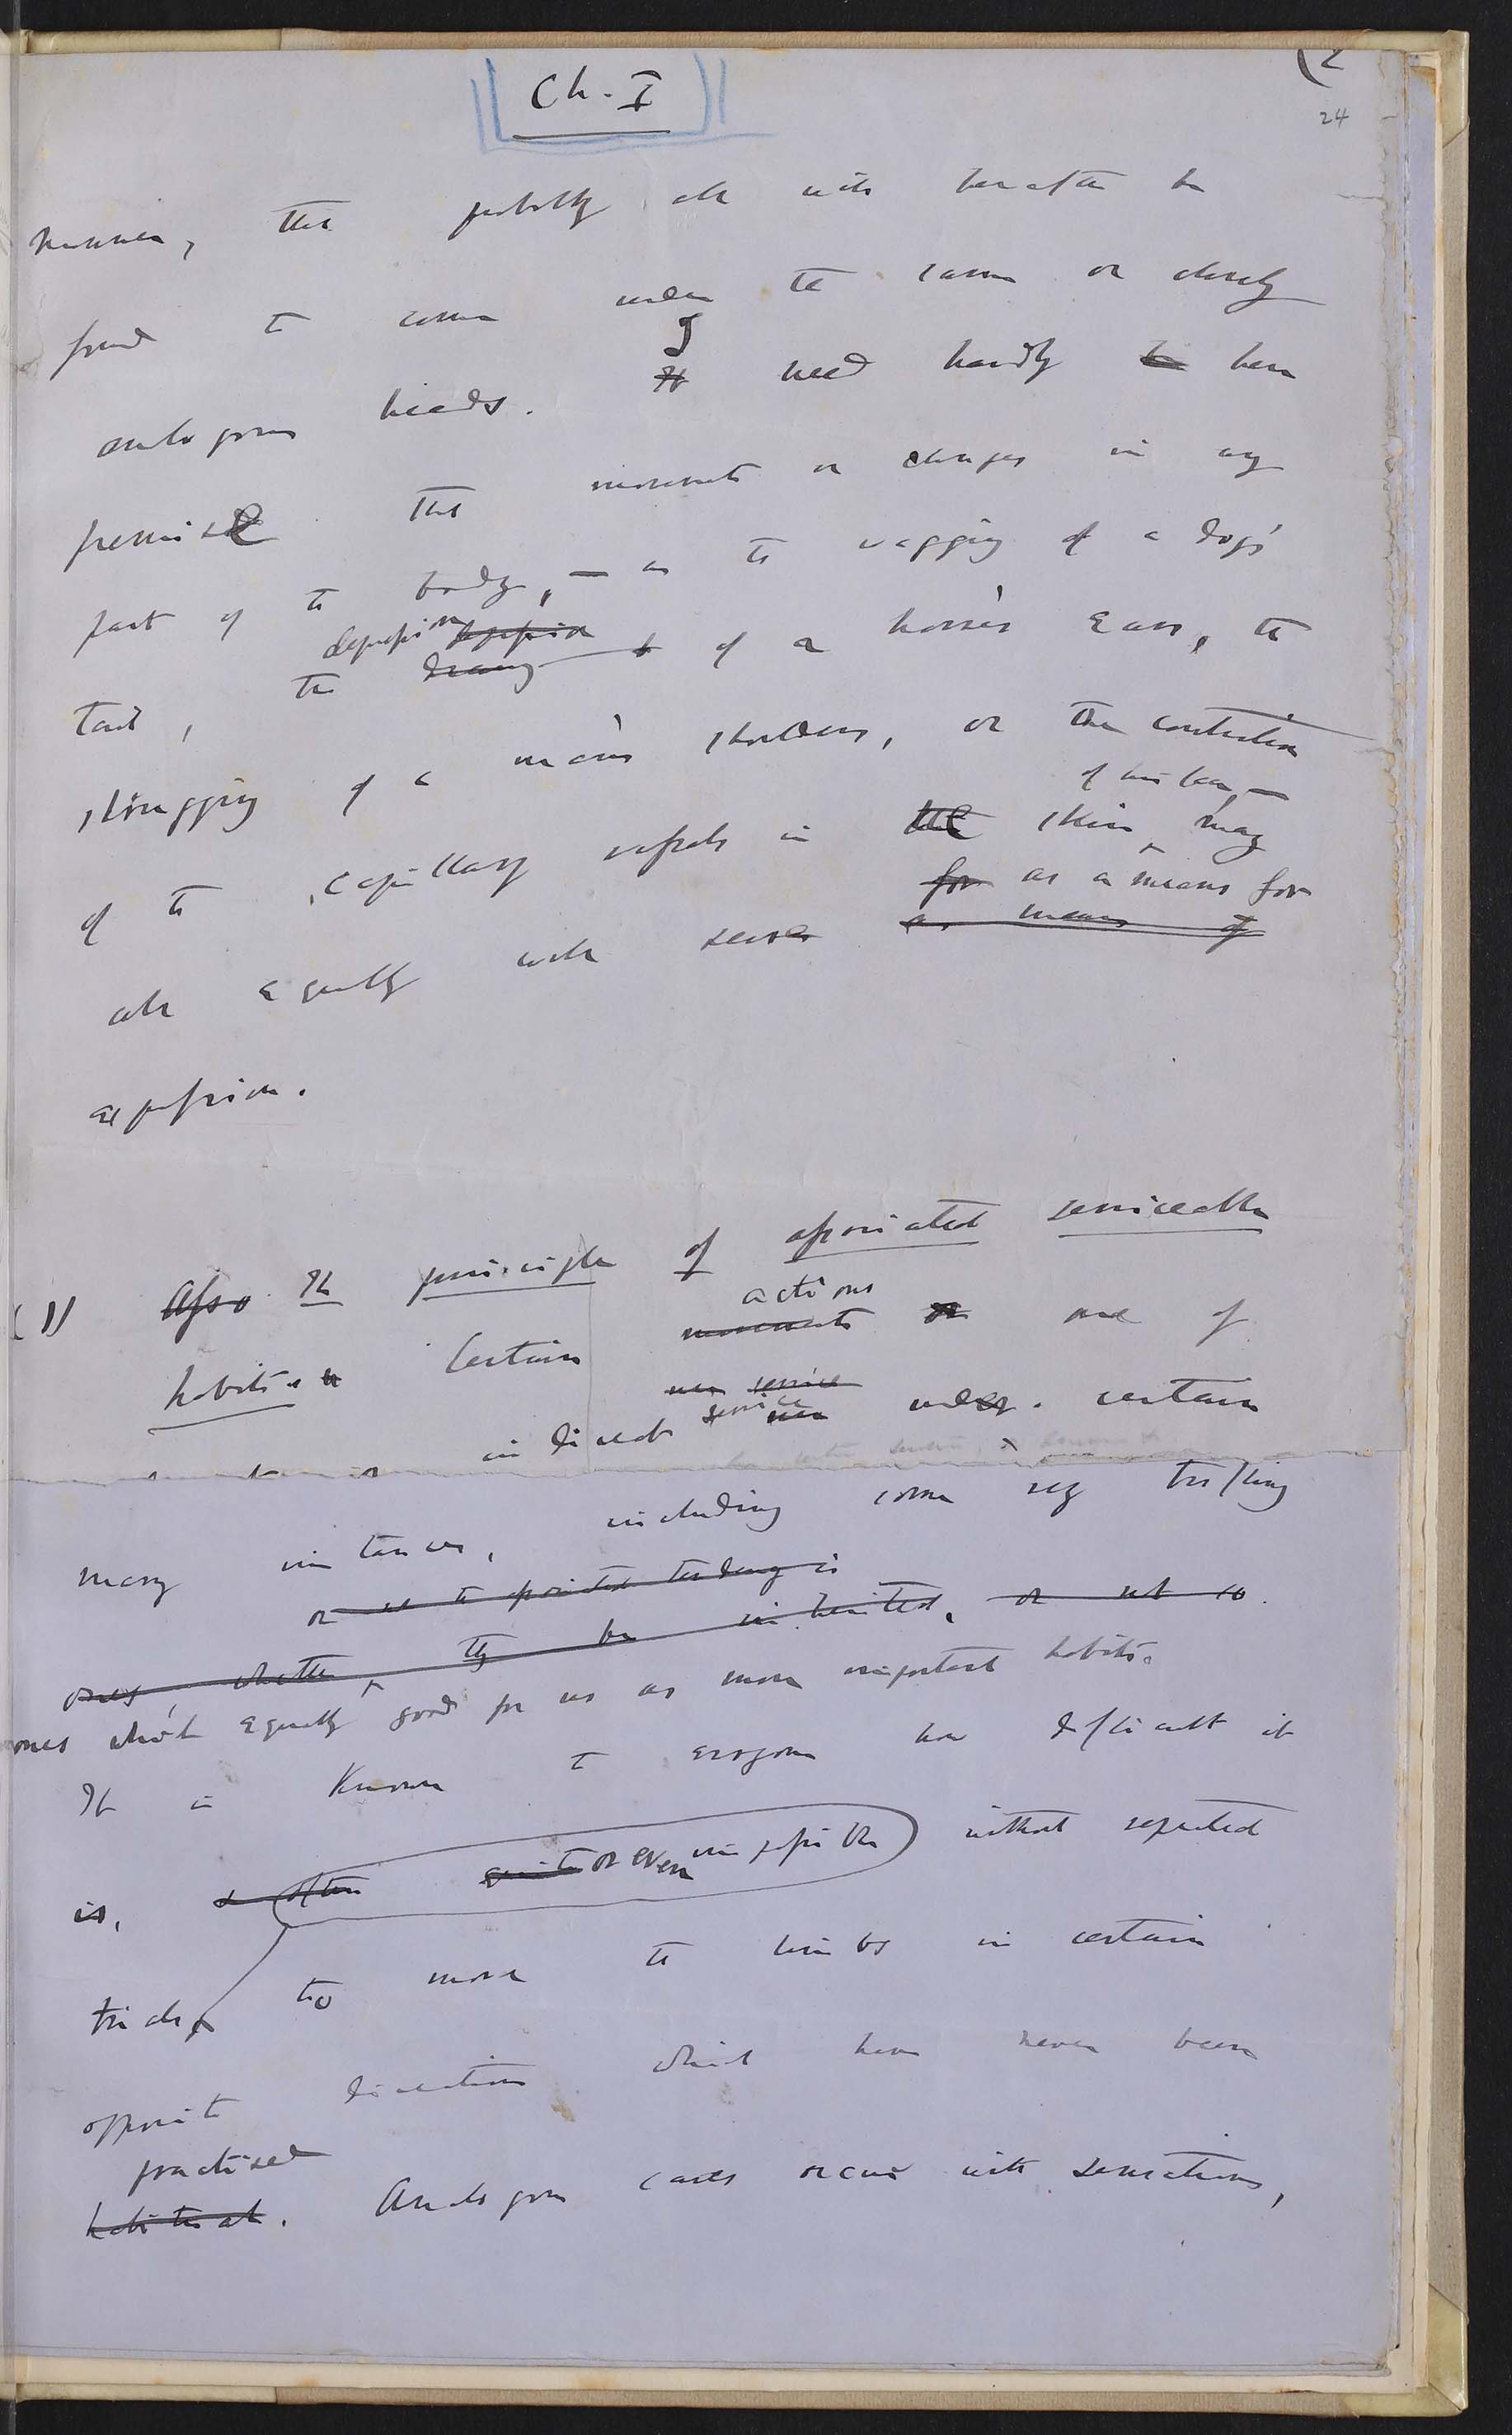 (2
Ch. I
24
manner, that probably all will hereafter be
found to come under the same or closely
analogous heads. I It need hardly be here
premise that movements or changes in any
part of the body, — as the wagging of a dog's
depression
tail, the drawing of a horse's ears, the
shrugging of a man's shoulders, or the contraction
of his face, —
of the capillary vessels in the skin, may
for as a means for
all equally well serve as means of
expression.
(1) Also The principle of associated serviceable
actions
habits. Certain movements are of
use service
indirect service use under certain
many instances, including some very trifling
or
ones, whether they be inherited, or not so.
ones which equally good for us as more important habits.
It is known to everyone how difficult it
is, often or even impossible without repeated
trials, to move the limbs in certain
opposite directions which have never been
practised
habitual. Analogous cases occur with sensations,